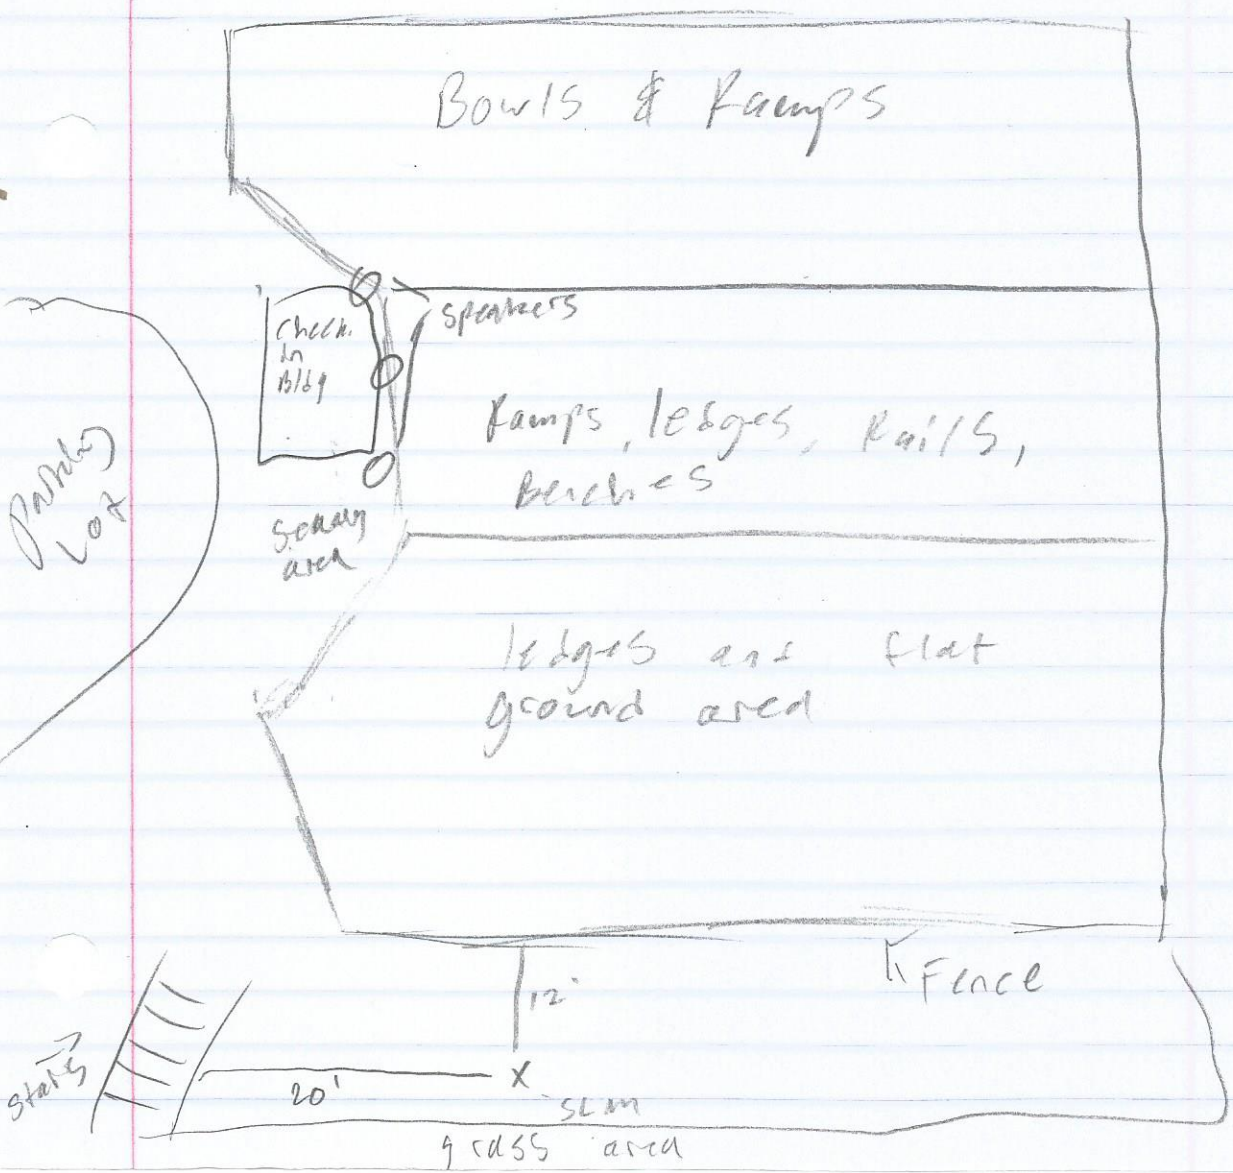 Bowls & Ramps
Speakers
Check
In
Bldg
Ramps, ledges, Rails,
Benches
Parking
Lot
Seating
area
ledges and flat
ground area
Fence
12'
Stairs
20'
X
grass area